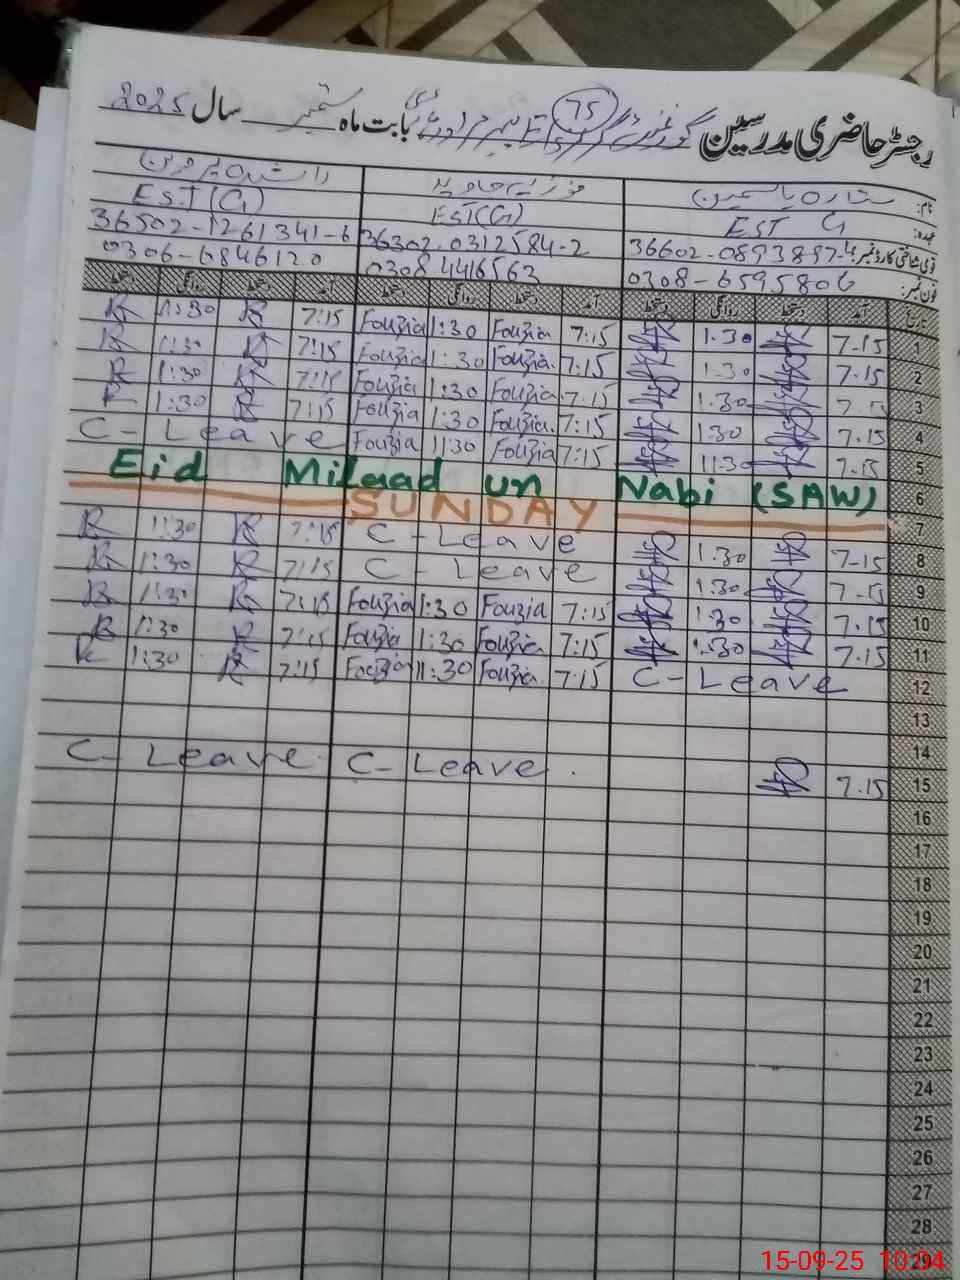 رجسٹر حاضری مدرسین گورنمنٹ گرلز بابت ماہ ستمبر سال 2025
75
نام: ستارہ یاسمین فوزیہ جاوید راشدہ پروین
عہدہ: EST G EST(G) EST(G)
قومی شناختی کارڈ نمبر: 36602-0893897-4 36302-0312584-2 36502-1261341-6
فون نمبر: 0308-6595806 0308 4416563 0306-6846120
تاریخ آمد دستخط روانگی دستخط آمد دستخط روانگی دستخط آمد دستخط روانگی دستخط
1 7-15 1.30 7:15 Fouzia 1:30 Fouzia 7:15 1:30
2 7.15 1.30 7:15 Fouzia. 1:30 Fouzia 7:15 1:30
3 7.15 1.30 7:15 Fouzia 1:30 Fouzia 7:15 1:30
4 7.15 1:30 7:15 Fouzia. 1:30 Fouzia 7:15 1:30
5 7.15 11.30 7:15 Fouzia 11:30 Fouzia C- Leave
6 Eid Milaad un Nabi (SAW)
7 SUNDAY
8 7-15 1.30 C - Leave 7:15 1:30
9 7-15 1:30 C - Leave 7:15 1:30
10 7.15 1:30 7:15 Fouzia 1:30 Fouzia 7:15 1:30
11 7.15 1:30 7:15 Fouzia. 1:30 Fouzia 7:15 1:30
12 C - Leave 7:15 Fouzia. 11:30 Fouzia 7:15 1:30
13
14
15 7.15 C- Leave. C- Leave.
16
17
18
19
20
21
22
23
24
25
26
27
28
29
15-09-25 10:04